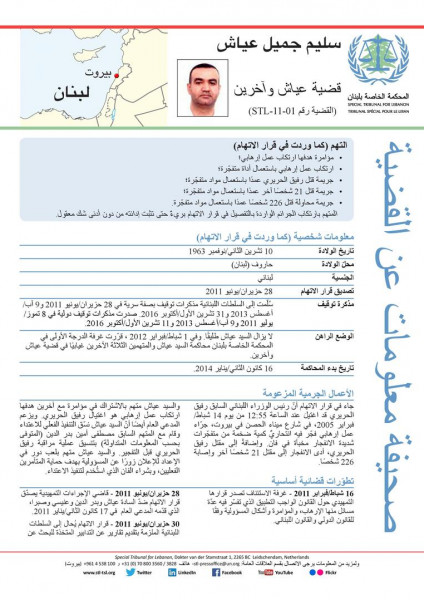 سليم جميل عياش
قضية عياش وآخرين
(القضية رقم STL-11-01)
بيروت
لبنان
المحكمة الخاصة بلبنان
SPECIAL TRIBUNAL FOR LEBANON
TRIBUNAL SPÉCIAL POUR LE LIBAN
صحيفة معلومات عن القضية
التهم (كما وردت في قرار الاتهام)
• مؤامرة هدفها ارتكاب عمل إرهابي؛
• ارتكاب عمل إرهابي باستعمال أداة متفجّرة؛
• جريمة قتل رفيق الحريري عمدًا باستعمال مواد متفجّرة؛
• جريمة قتل 21 شخصًا آخر عمدًا باستعمال مواد متفجّرة؛
• جريمة محاولة قتل 226 شخصًا عمدًا باستعمال مواد متفجّرة.
المتهم بارتكاب الجرائم الواردة بالتفصيل في قرار الاتهام بريء حتى تثبت إدانته من دون أدنى شك معقول.
معلومات شخصية (كما وردت في قرار الاتهام)
تاريخ الولادة 10 تشرين الثاني/نوفمبر 1963
محل الولادة حاروف (لبنان)
الجنسية لبناني
تصديق قرار الاتهام 28 حزيران/يونيو 2011
مذكرة توقيف سُلّمت إلى السلطات اللبنانية مذكرات توقيف بصفة سرية في 28 حزيران/يونيو 2011 و9 آب/
أغسطس 2013 و31 تشرين الأول/أكتوبر 2016. صدرت مذكرات توقيف دولية في 8 تموز/
يوليو 2011 و9 آب/أغسطس 2013 و11 تشرين الأول/أكتوبر 2016.
الوضع الراهن لا يزال السيد عياش طليقًا. وفي 1 شباط/فبراير 2012، قرّرت غرفة الدرجة الأولى في
المحكمة الخاصة بلبنان محاكمة السيد عياش والمتهمين الثلاثة الآخرين غيابيًا في قضية عياش
وآخرين.
تاريخ بدء المحاكمة 16 كانون الثاني/يناير 2014.
الأعمال الجرمية المزعومة
جاء في قرار الاتهام أنّ رئيس الوزراء اللبناني السابق رفيق
الحريري قد اغتيل عند الساعة 12:55 من يوم 14 شباط/
فبراير 2005، في شارع ميناء الحصن في بيروت، جرّاء
عمل إرهابي فجّر فيه انتحاريّ كمية ضخمة من متفجّرات
شديدة الانفجار مخبأة في فان. وإضافة إلى مقتل رفيق
الحريري، أدى الانفجار إلى مقتل 21 شخصًا آخر وإصابة
226 شخصًا.
تطوّرات قضائية أساسية
16 شباط/فبراير 2011 - غرفة الاستئناف تصدر قرارها
التمهيدي حول القانون الواجب التطبيق الذي تفسّر فيه عدّة
مسائل منها الإرهاب، والمؤامرة وأشكال المسؤولية وفقًا
للقانون الدولي والقانون اللبناني.
والسيد عياش متهم بالاشتراك في مؤامرة مع آخرين هدفها
ارتكاب عمل إرهابي هو اغتيال رفيق الحريري. ويزعم
المدعي العام أيضًا أنّ السيد عياش نسّق التنفيذ الفعلي للاعتداء
وقام مع المتهم السابق مصطفى أمين بدر الدين (المتوفى
وفقًا للمعلومات) بتنسيق عملية مراقبة رفيق
الحريري قبل التفجير. والسيد عياش متهم بلعب دور في
الإعداد للإعلان زورًا عن المسؤولية بهدف حماية المتآمرين
الفعليين، وبشراء الفان الذي استُخدم لتنفيذ الاعتداء.
28 حزيران/يونيو 2011 - قاضي الإجراءات التمهيدية يصدّق
قرار الاتهام ضدّ السادة عياش وبدر الدين وعنيسي وصبرا،
الذي قدّمه المدعي العام في 17 كانون الثاني/يناير 2011.
30 حزيران/يونيو 2011 - قرار الاتهام يُحال إلى السلطات
اللبنانية الملزمة بتقديم تقارير عن التدابير المتخذة للبحث عن
Special Tribunal for Lebanon, Dokter van der Stamstraat 1, 2265 BC Leidschendam, Netherlands
ولمزيد من المعلومات يرجى الاتصال بقسم العلاقات العامة: stl-pressoffice@un.org
www.stl-tsl.org Twitter LinkedIn Facebook YouTube Flickr